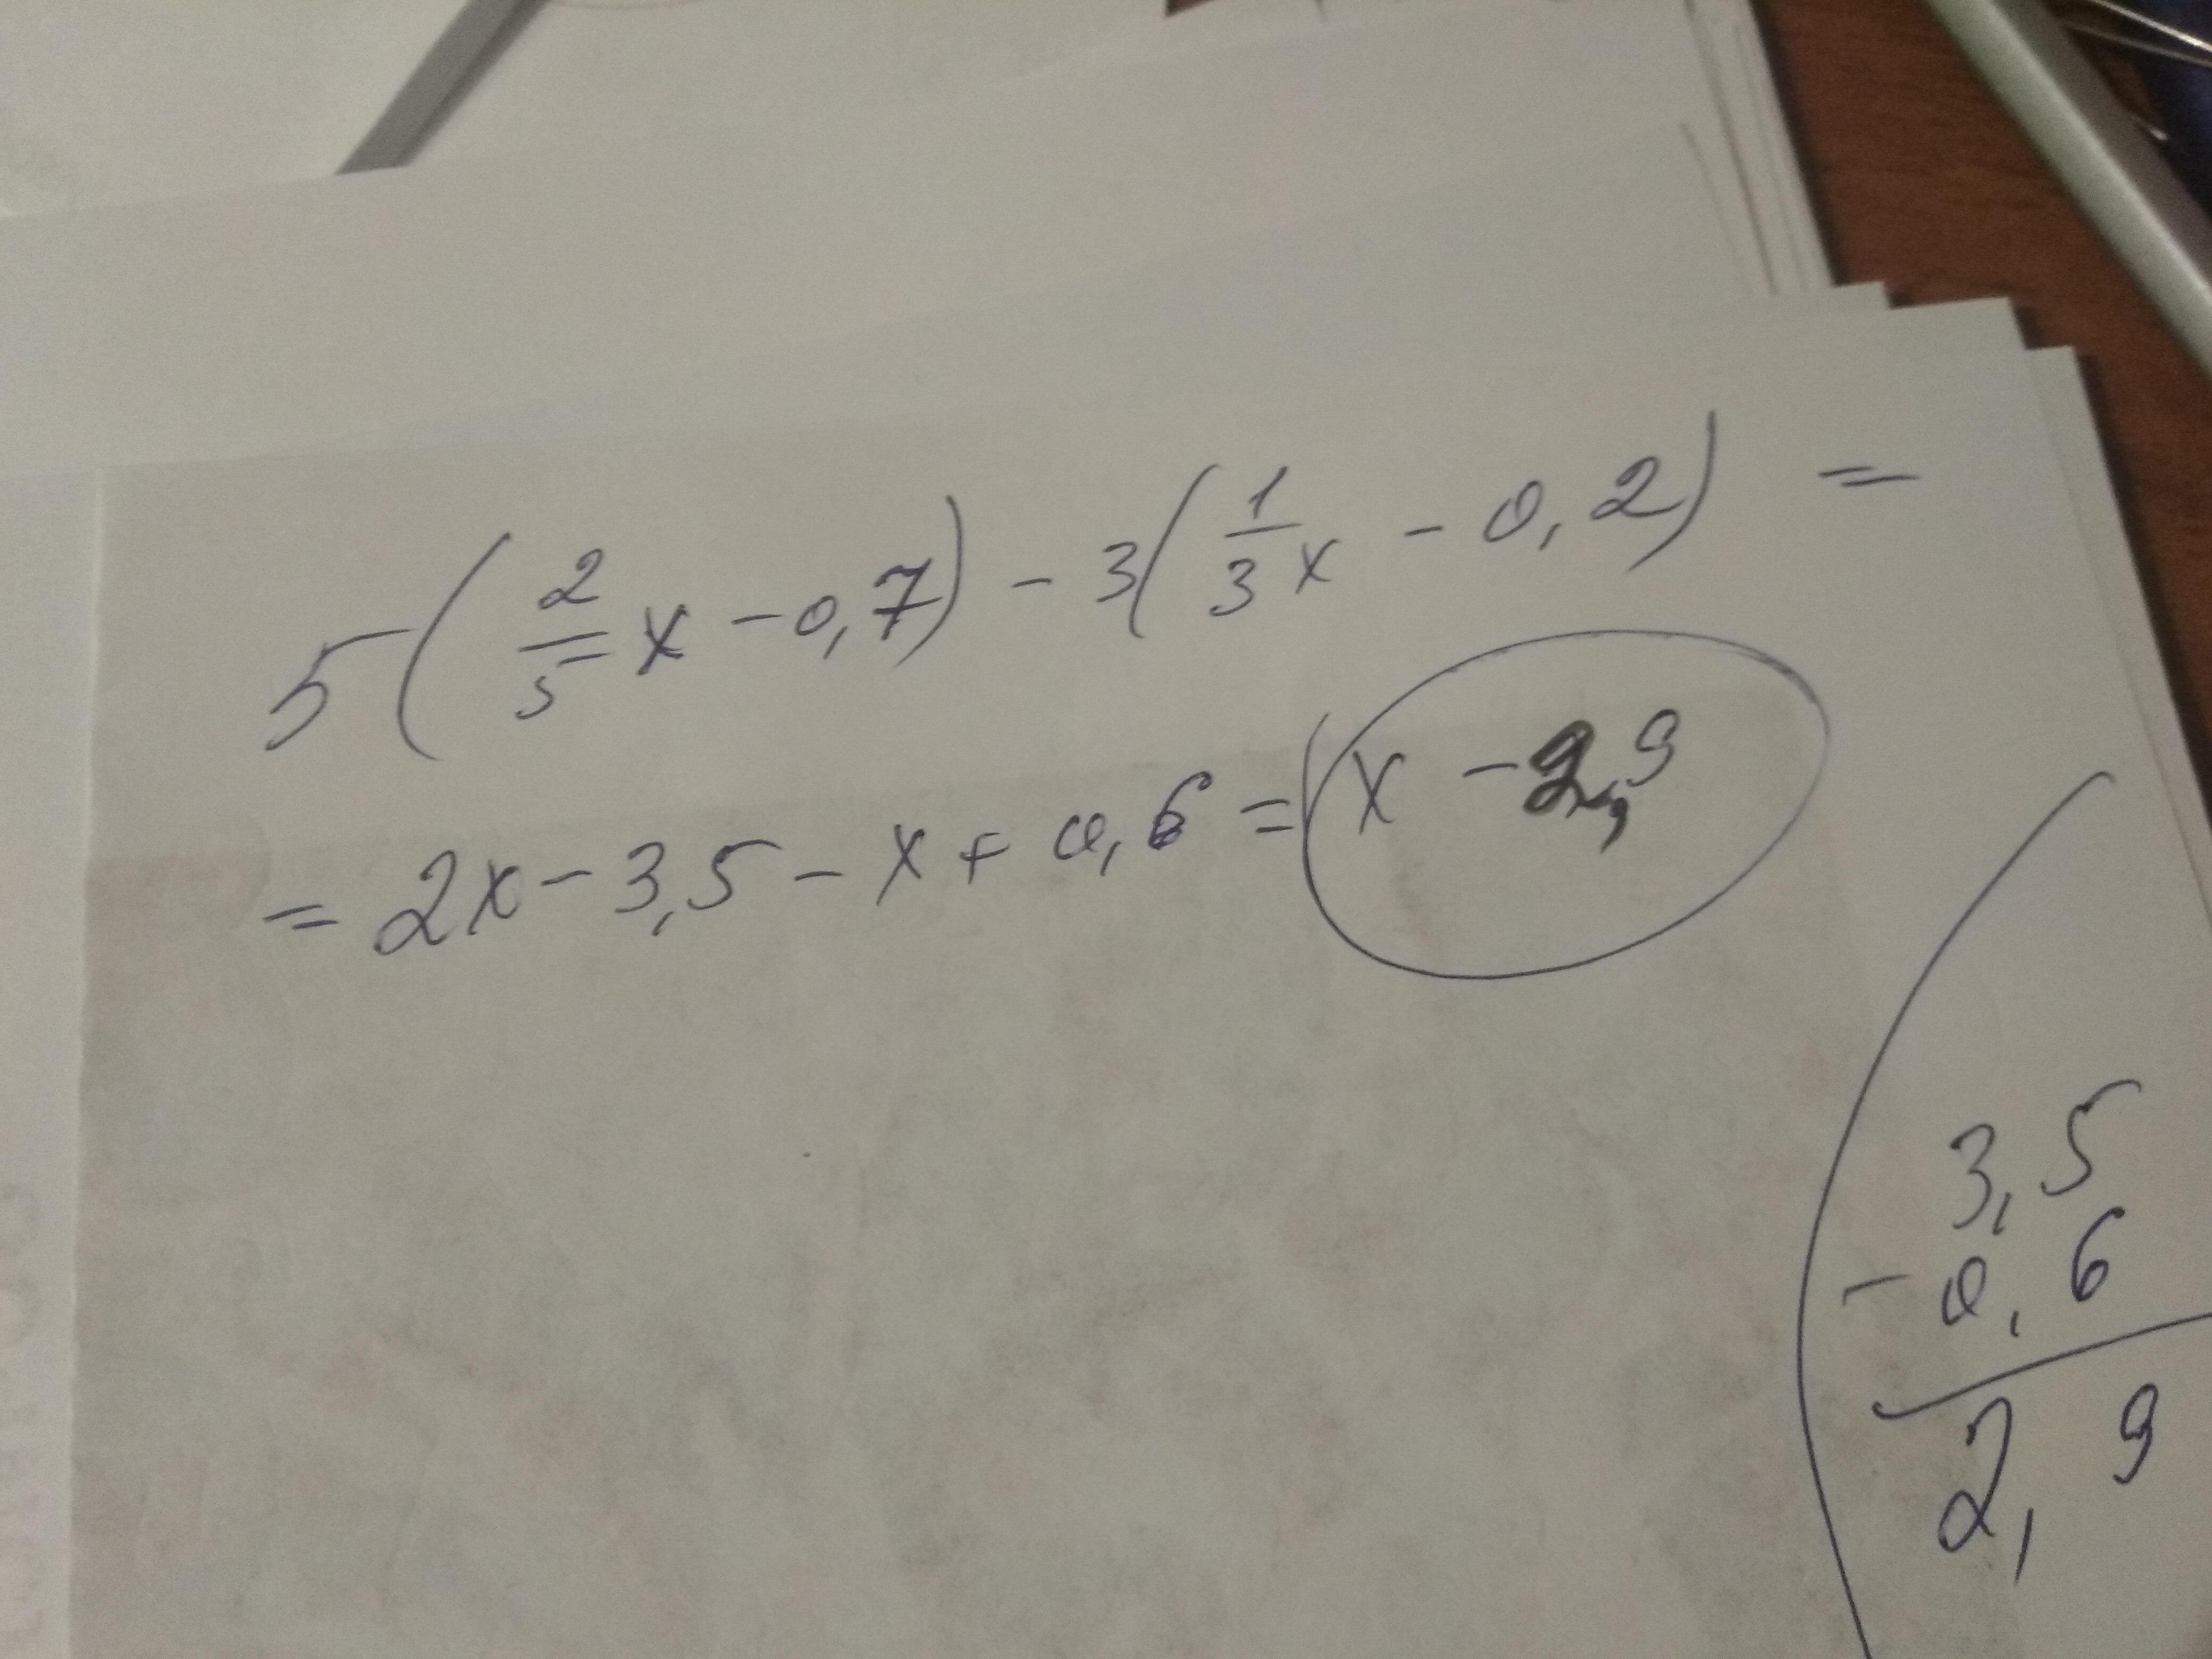 5(2/5 x - 0,7) - 3(1/3 x - 0,2) =
= 2x - 3,5 - x + 0,6 = x - 2,9
3,5
- 0,6
2,9